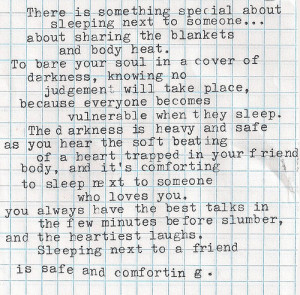 There is something special about
sleeping next to someone...
about sharing the blankets
and body heat.
To bare your soul in a cover of
darkness, knowing no
judgement will take place,
because everyone becomes
vulnerable when they sleep.
The darkness is heavy and safe
as you hear the soft beating
of a heart trapped in your friend
body, and it's comforting
to sleep next to someone
who loves you.
you always have the best talks in
the few minutes before slumber,
and the heartiest laughs.
Sleeping next to a friend
is safe and comforting.